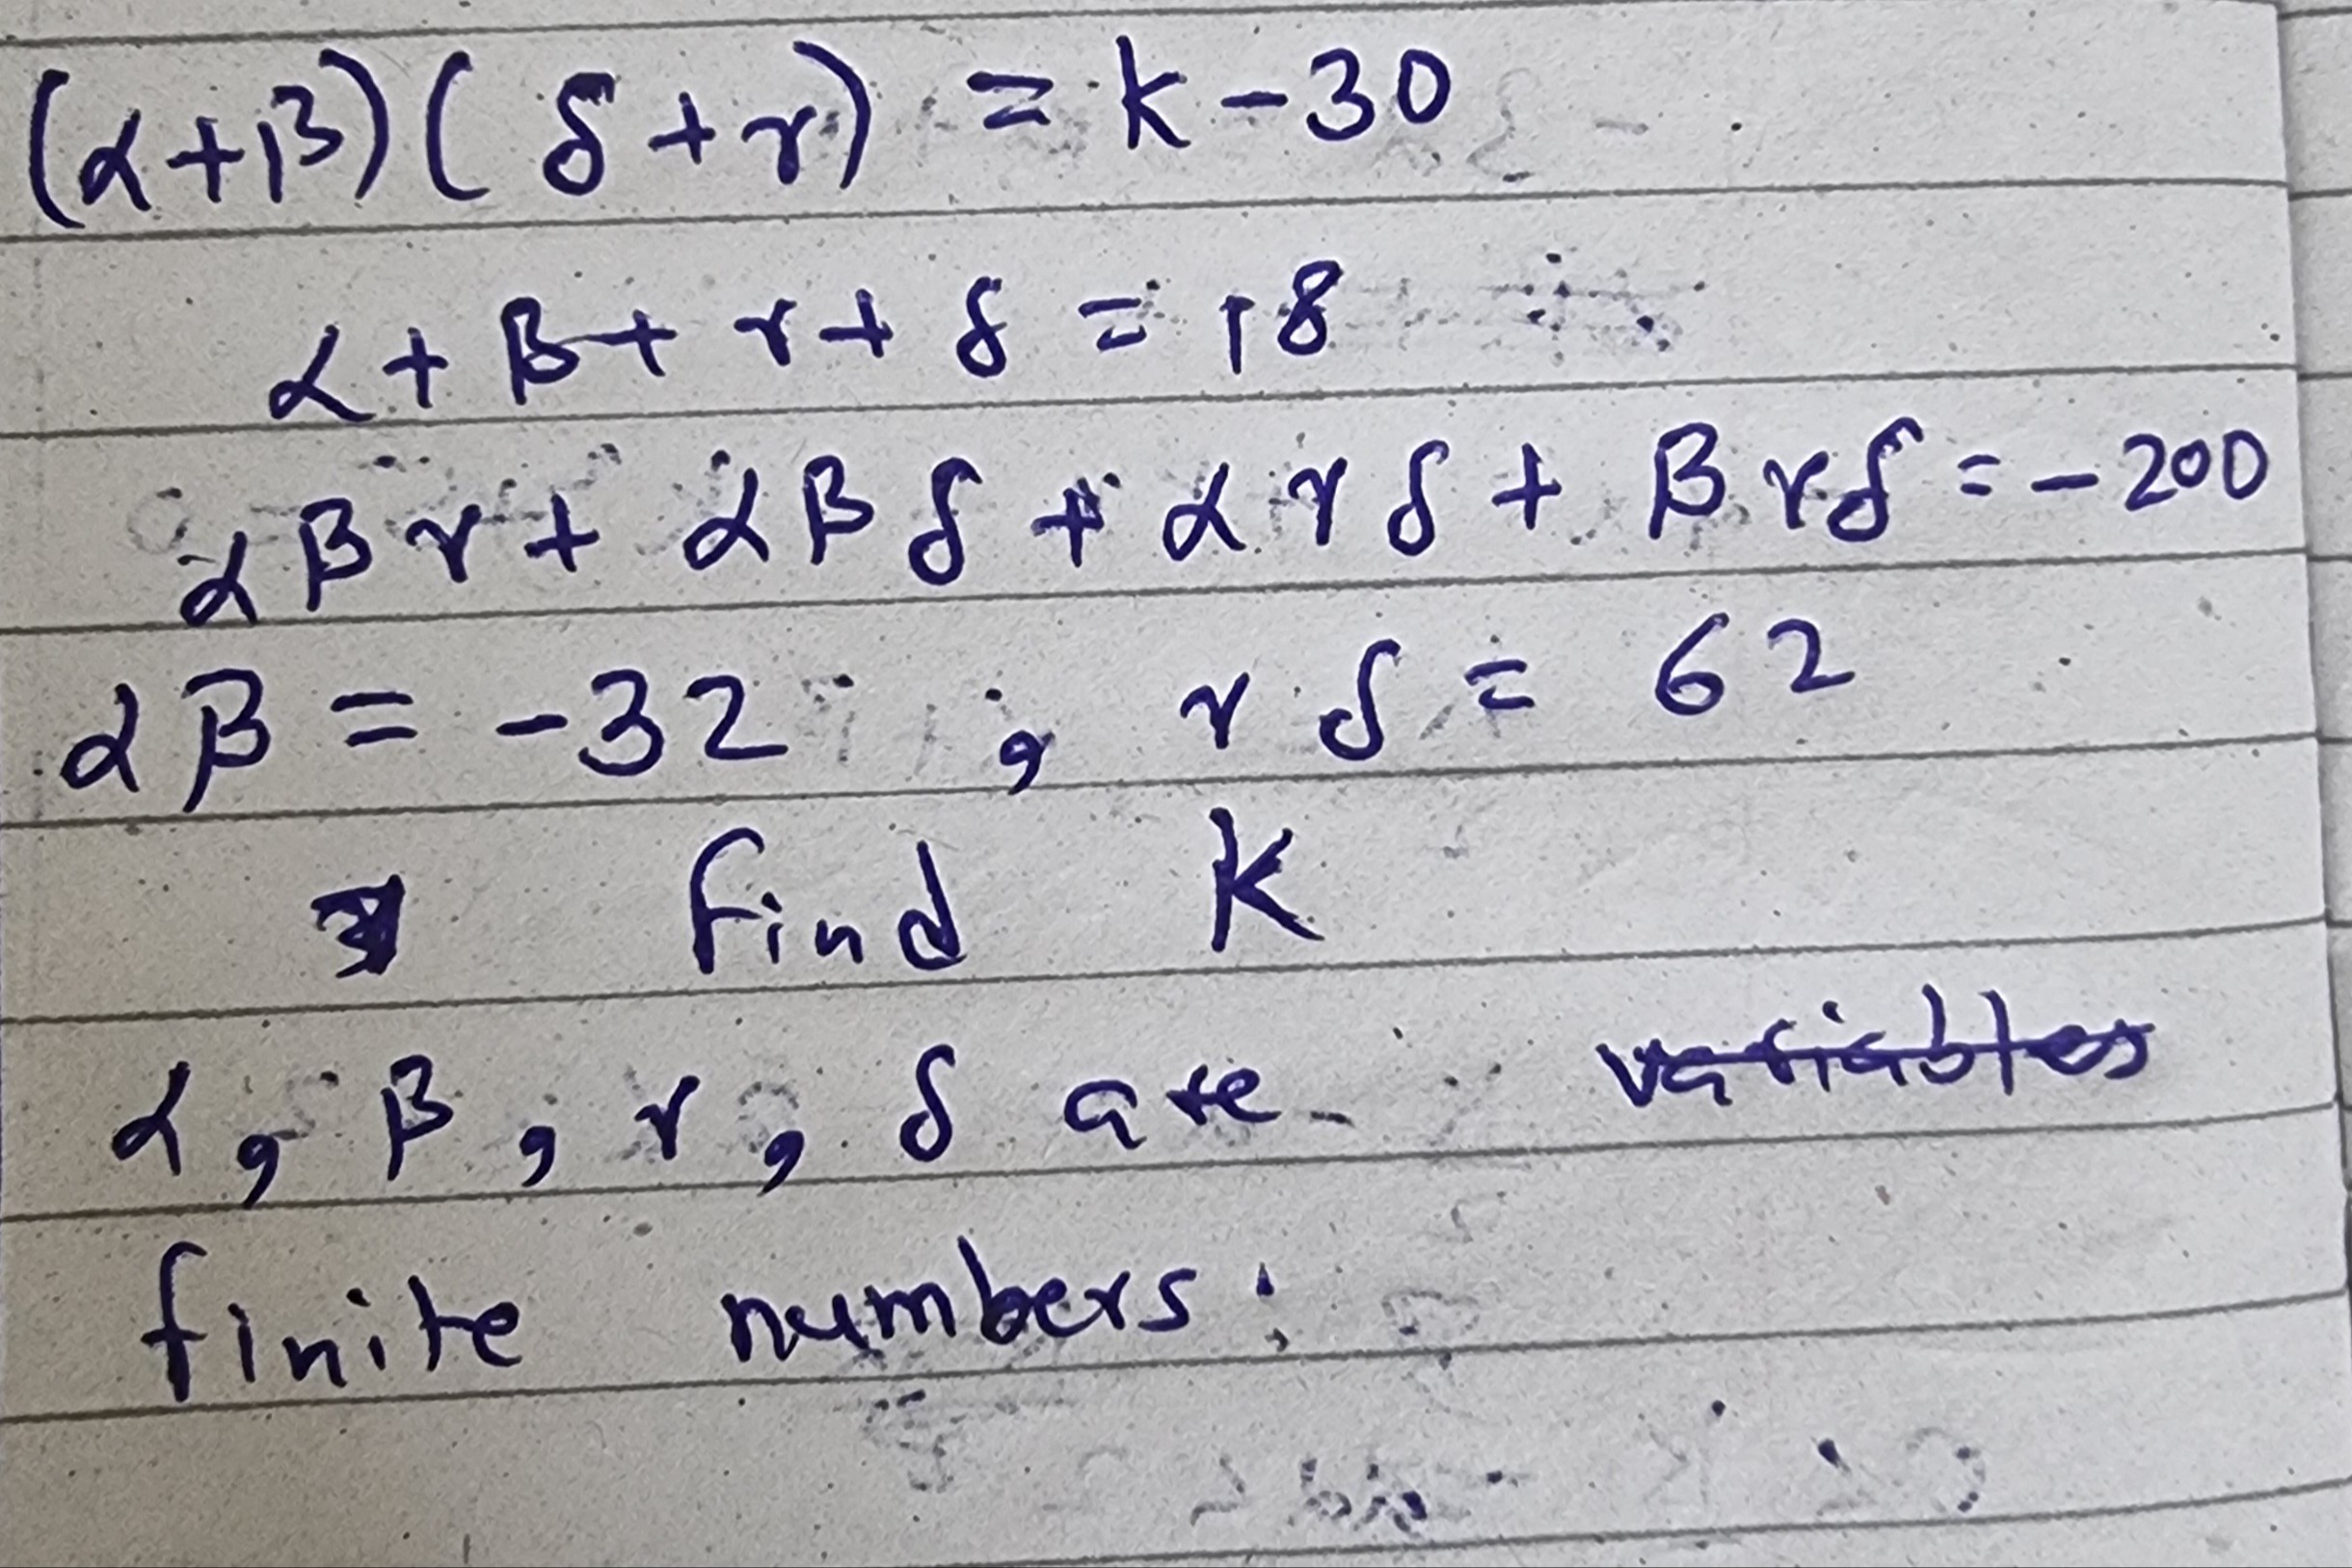 (α+β)(δ+γ) = k-30
α+β+γ+δ = 18
αβγ+αβδ+αγδ+βγδ=-200
αβ = -32 , γδ = 62
find K
α, β, γ, δ are variables
finite numbers: